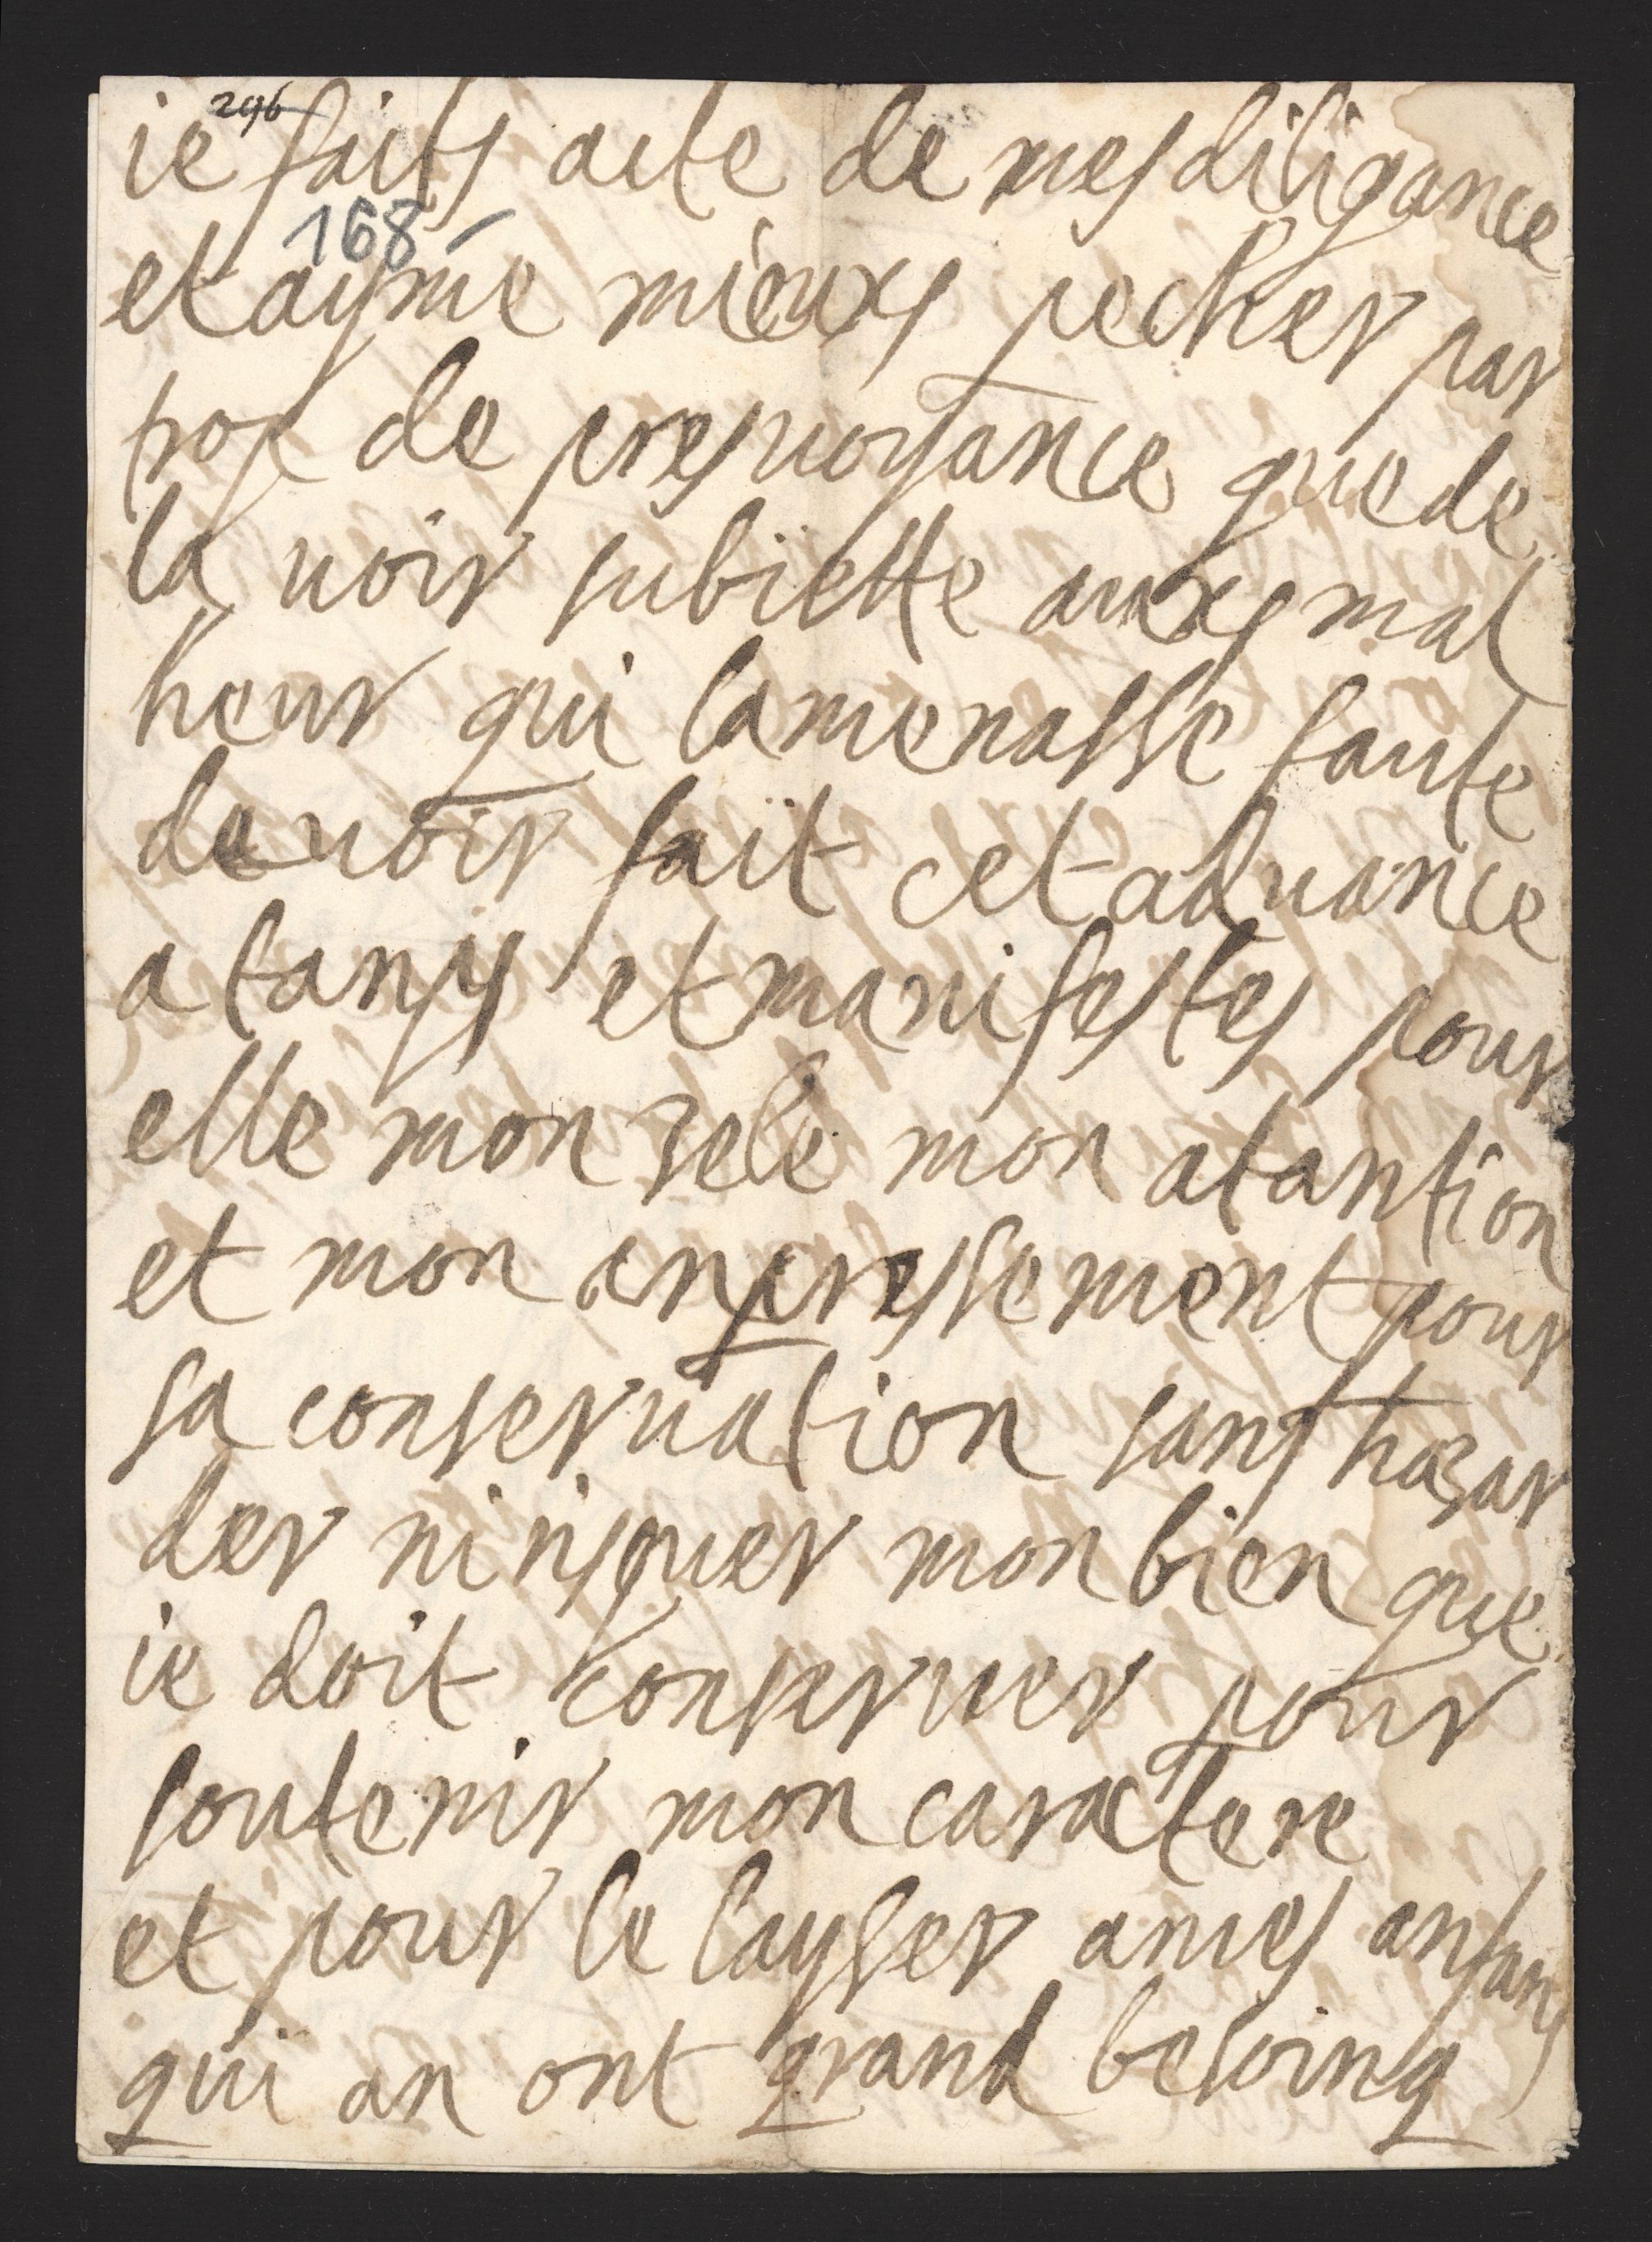 296
ie faits acte de mes diligance
168 -
et ayme mieuxs pecher par
trop de presuoyance que de
la uoir subiette auxs mal
heur qui la menasse faute
deuoir fait cet aduance
a tans et manifestes pour
elle mon zele mon atantion
et mon anpressement pour
sa conseruation sans hazar
der ni risquer mon bien que
ie doit conseruer pour
soutenir mon caractere
et pour le laysser a mes anfans
qui an ont grand besoing